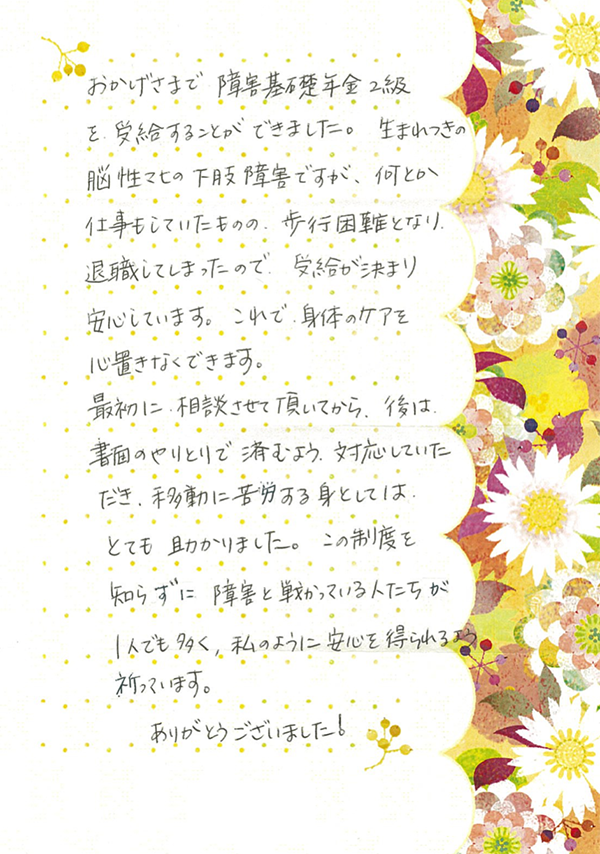 おかげさまで 障害基礎年金2級
を、受給することができました。 生まれつきの
脳性マヒの下肢障害ですが、何とか
仕事もしていたものの、歩行困難となり、
退職してしまったので、受給が決まり
安心しています。これで、身体のケアを
心置きなくできます。
最初に、相談させて頂いてから、後は、
書面のやりとりで済むよう、対応していた
だき、移動に苦労する身としては、
とても助かりました。この制度を
知らずに 障害と戦かっている人たちが
1人でも多く、私のように安心を得られるよう
祈っています。
ありがとうございました!